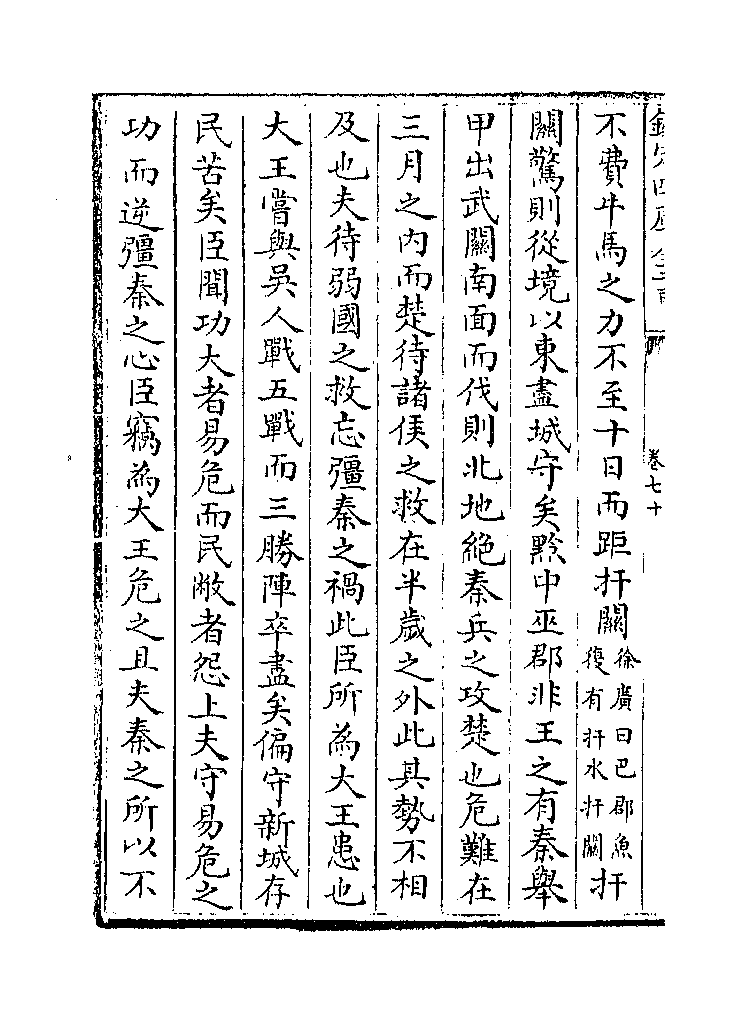 欽定四庫全書
卷七十
不費牛馬之力不至十日而距扞關徐廣曰巴郡魚復有扞水扞關扞
關驚則從境以東盡城守矣黔中巫郡非王之有秦舉
甲出武關南面而伐則北地絶秦兵之攻楚也危難在
三月之内而楚待諸侯之救在半歲之外此其勢不相
及也夫待弱國之救忘彊秦之禍此臣所為大王患也
大王嘗與吳人戰五戰而三勝陣卒盡矣偏守新城存
民苦矣臣聞功大者易危而民敝者怨上夫守易危之
功而逆彊秦之心臣竊為大王危之且夫秦之所以不